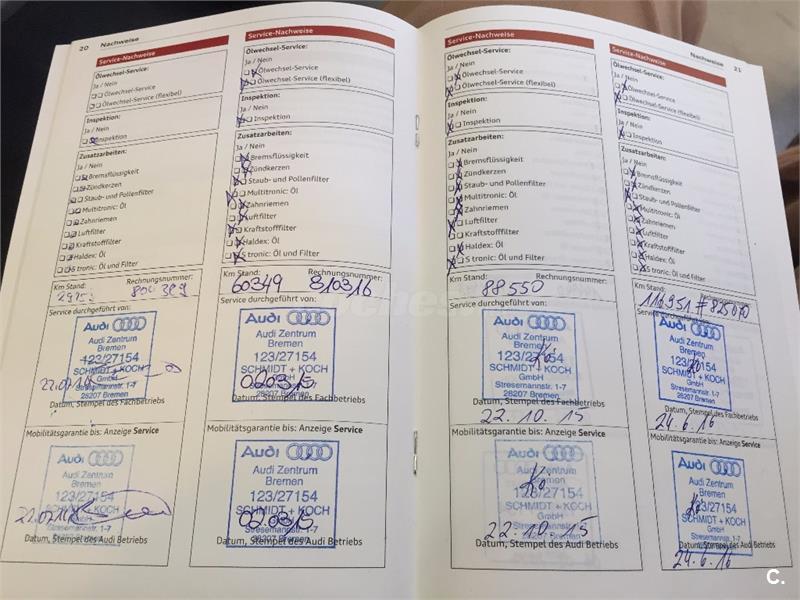 20 Nachweise
Service-Nachweise
Ölwechsel-Service:
Ja / Nein
Ölwechsel-Service
Ölwechsel-Service (flexibel)
Inspektion:
Ja / Nein
Inspektion
Zusatzarbeiten:
Ja / Nein
Bremsflüssigkeit
Zündkerzen
Staub- und Pollenfilter
Multitronic: Öl
Zahnriemen
Luftfilter
Kraftstofffilter
Haldex: Öl
S tronic: Öl und Filter
Km Stand: Rechnungsnummer:
Service durchgeführt von:
Audi
Audi Zentrum
Bremen
123/27154
SCHMIDT + KOCH
GmbH
Stresemannstr. 1-7
28207 Bremen
Datum, Stempel des Fachbetriebs
Mobilitätsgarantie bis: Anzeige Service
Audi
Audi Zentrum
Bremen
123/27154
SCHMIDT + KOCH
Stresemannstr. 1-7
28207 Bremen
Datum, Stempel des Audi Betriebs
Service-Nachweise
Ölwechsel-Service:
Ja / Nein
Ölwechsel-Service
Ölwechsel-Service (flexibel)
Inspektion:
Ja / Nein
Inspektion
Zusatzarbeiten:
Ja / Nein
Bremsflüssigkeit
Zündkerzen
Staub- und Pollenfilter
Multitronic: Öl
Zahnriemen
Luftfilter
Kraftstofffilter
Haldex: Öl
S tronic: Öl und Filter
Km Stand: Rechnungsnummer:
60349 810316
Service durchgeführt von:
Audi
Audi Zentrum
Bremen
123/27154
SCHMIDT + KOCH
GmbH
Stresemannstr. 1-7
28207 Bremen
Datum, Stempel des Fachbetriebs
Mobilitätsgarantie bis: Anzeige Service
Audi
Audi Zentrum
Bremen
123/27154
SCHMIDT + KOCH
Stresemannstr. 1-7
28207 Bremen
Datum, Stempel des Audi Betriebs
Service-Nachweise
Ölwechsel-Service:
Ja / Nein
Ölwechsel-Service
Ölwechsel-Service (flexibel)
Inspektion:
Ja / Nein
Inspektion
Zusatzarbeiten:
Ja / Nein
Bremsflüssigkeit
Zündkerzen
Staub- und Pollenfilter
Multitronic: Öl
Zahnriemen
Luftfilter
Kraftstofffilter
Haldex: Öl
S tronic: Öl und Filter
Km Stand: Rechnungsnummer:
88550
Service durchgeführt von:
Audi
Audi Zentrum
Bremen
123/27154
SCHMIDT + KOCH
GmbH
Stresemannstr. 1-7
28207 Bremen
Datum, Stempel des Fachbetriebs
22.10.15
Mobilitätsgarantie bis: Anzeige Service
Audi
Audi Zentrum
Bremen
123/27154
SCHMIDT + KOCH
GmbH
Stresemannstr. 1-7
22.10.15
Datum, Stempel des Audi Betriebs
Nachweise 21
Service-Nachweise
Ölwechsel-Service:
Ja / Nein
Ölwechsel-Service
Ölwechsel-Service (flexibel)
Inspektion:
Ja / Nein
Inspektion
Zusatzarbeiten:
Ja / Nein
Bremsflüssigkeit
Zündkerzen
Staub- und Pollenfilter
Multitronic: Öl
Zahnriemen
Luftfilter
Kraftstofffilter
Haldex: Öl
S tronic: Öl und Filter
Km Stand: Rechnungsnummer:
116951 #825070
Service durchgeführt von:
Audi
Audi Zentrum
Bremen
123/27154
SCHMIDT + KOCH
GmbH
Stresemannstr. 1-7
28207 Bremen
Datum, Stempel des Fachbetriebs
24.6.16
Mobilitätsgarantie bis: Anzeige Service
Audi
Audi Zentrum
Bremen
123/27154
SCHMIDT + KOCH
GmbH
Stresemannstr. 1-7
Datum, Stempel des Audi Betriebs
24.6.16
C.